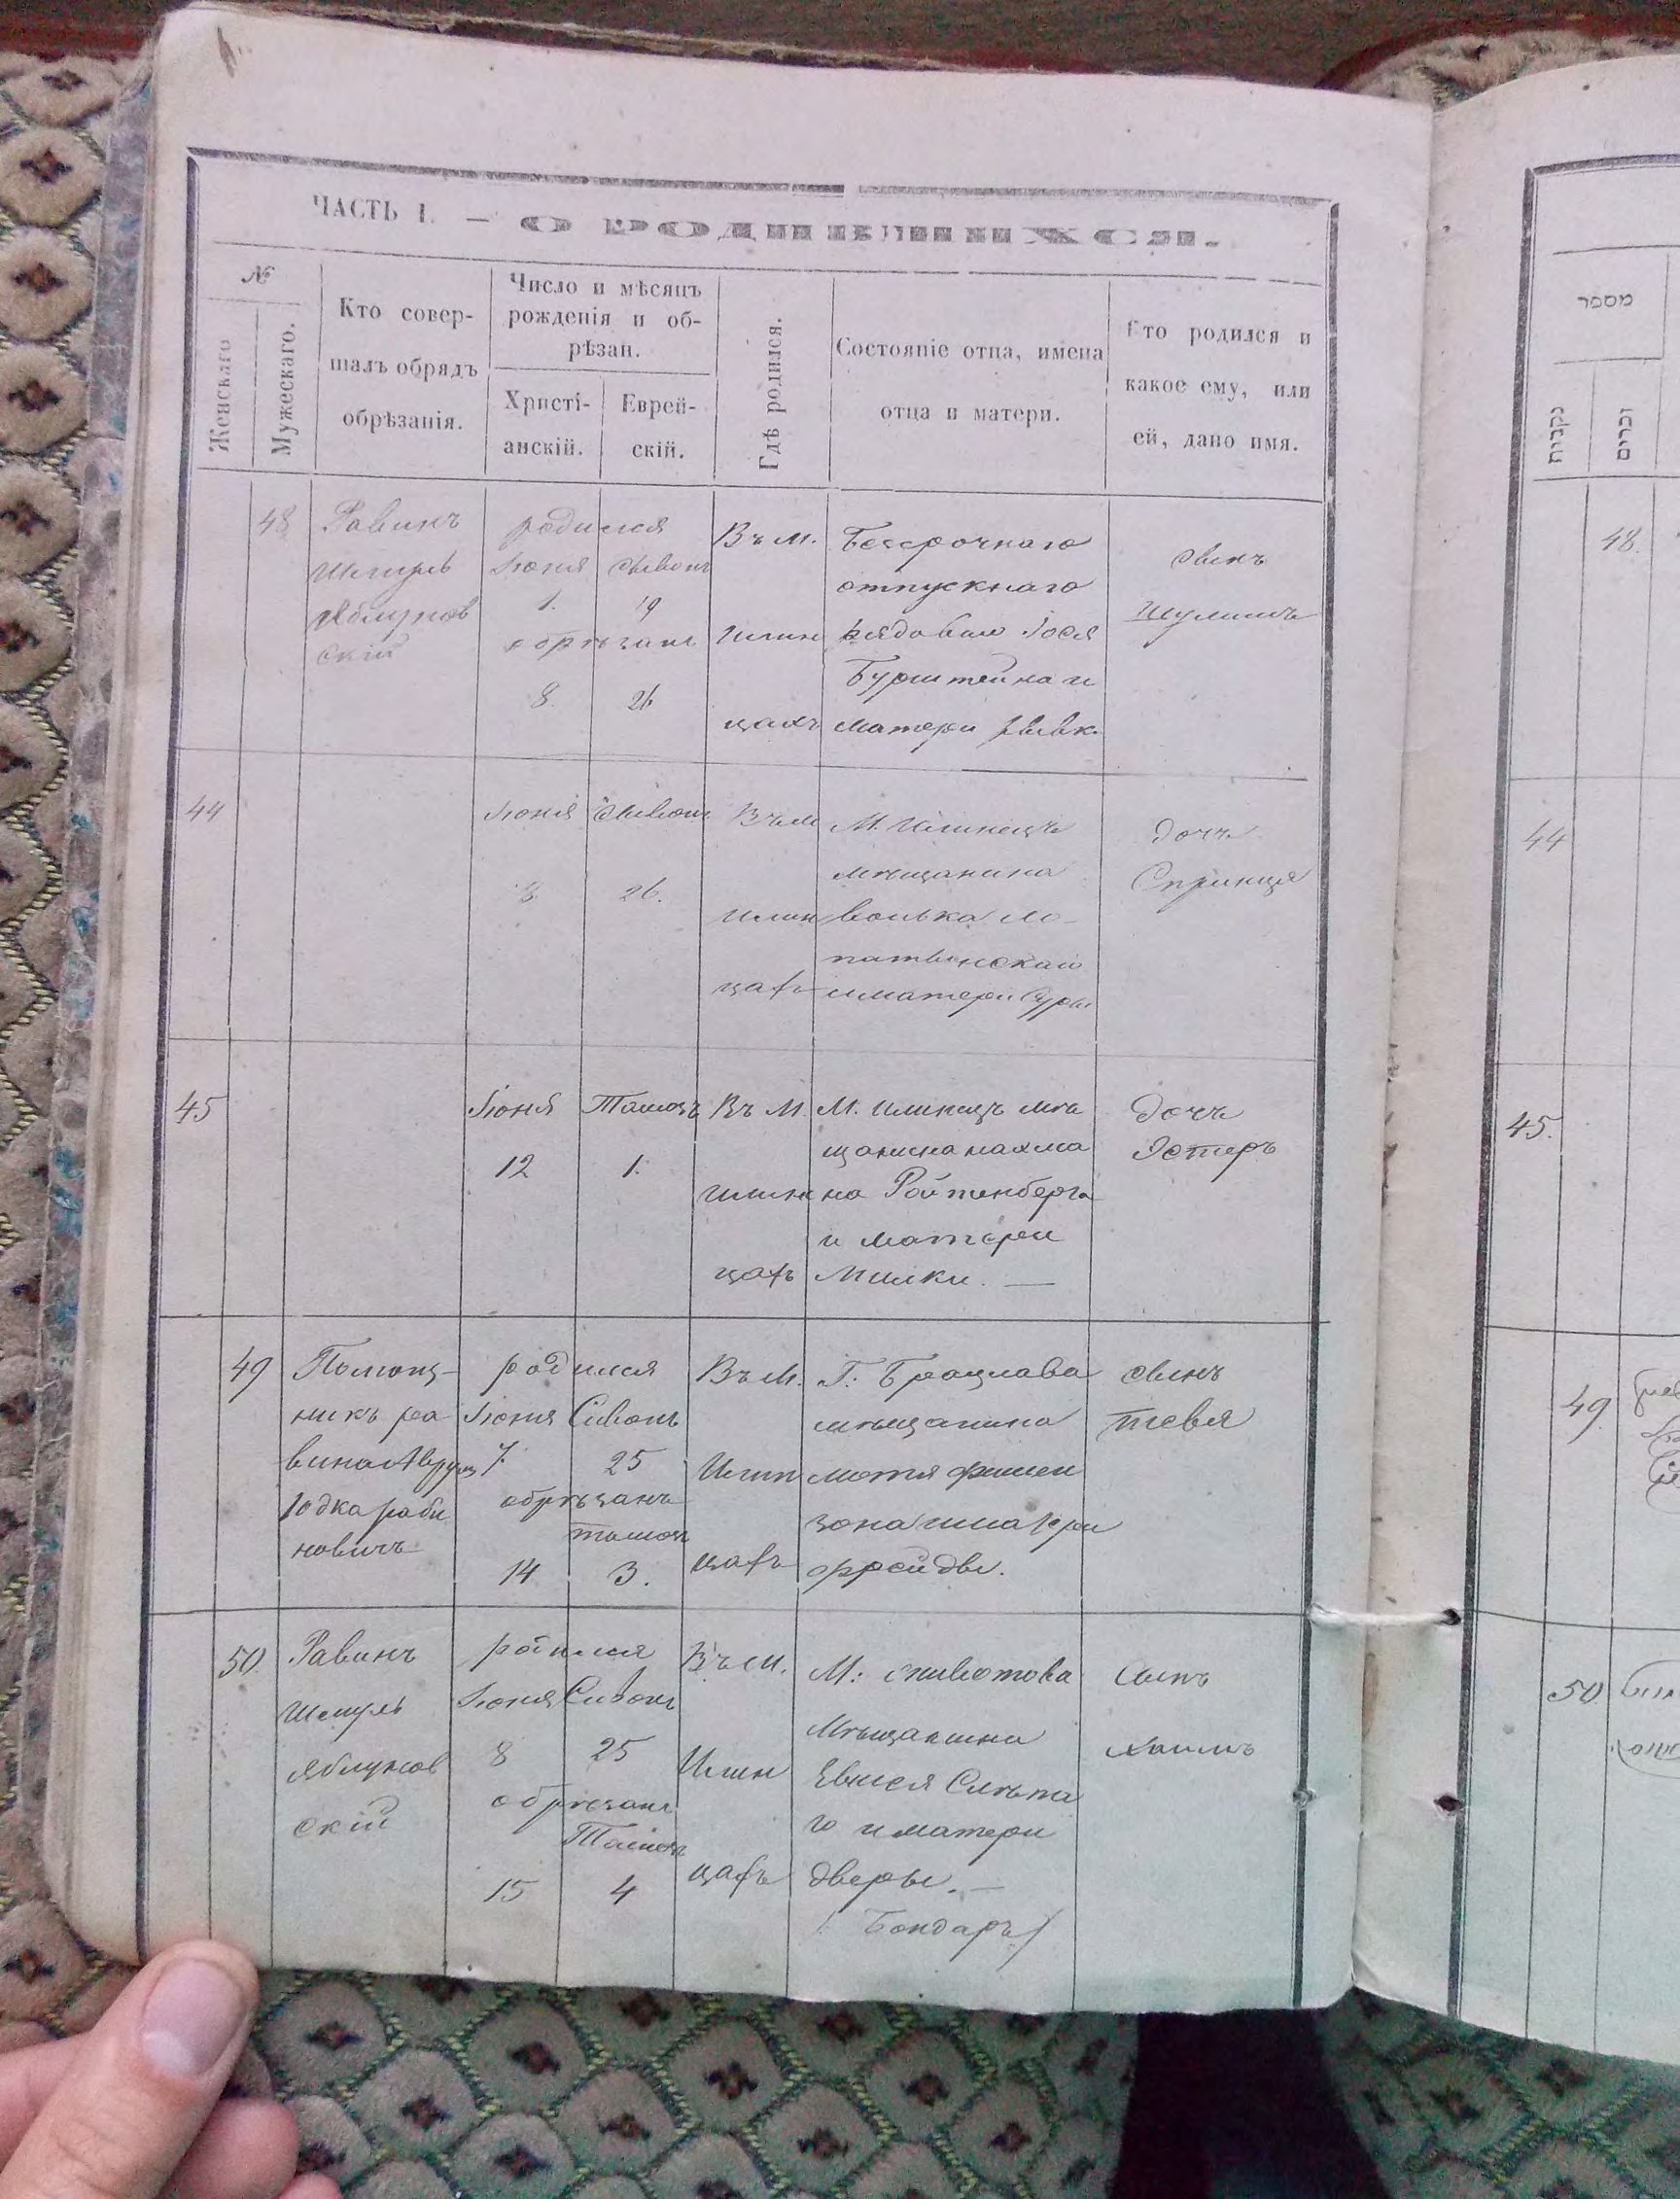 ЧАСТЬ I. — О РОДИВШИХСЯ.
№
Женскаго
Мужескаго.
Кто совер-
шалъ обрядъ
обрѣзанія.
Число и мѣсяцъ
рожденія и об-
рѣзан.
Христі-
анскій.
Еврей-
скій.
Гдѣ родился.
Состояніе отца, имена
отца и матери.
Кто родился и
какое ему, или
ей, дано имя.
48
Равинъ
Шмуль
Яблунов
скій
родился
Іюня Сывонъ
1. 19
обрѣзанъ
8. 26
Въ м.
Илин
цахъ
Безсрочнаго
отпускнаго
рядоваго Іося
Бурштейна и
матери Рывк.
сынъ
Шулимъ
44
Іюня Сывонъ
3 26.
Въ м
Илин
цахъ
М. Илинецъ
мѣщанина
волька Ло-
патынскаго
и матери Суры
дочь
Спринця
45
Іюня Тамозъ
12 1.
Въ М.
Илин
цахъ
М. Илинецъ мѣ
щанина нахма
на Ройтенберга
и матери
Милки. —
дочь
Эстеръ
49
Помощ-
никъ ра
вина Аврумъ
Іодка раби
новичъ
родился
Іюня Сивонъ
7. 25
обрѣзанъ
тамозъ
14 3.
Въ м.
Илин
цахъ
Г. Брацлава
мѣщанина
мотя фишен
зона и матери
фрейды.
сынъ
тевя
50.
Равинъ
Шмуль
Яблунов
скій
родился
Іюня Сивонъ
8 25
обрѣзанъ
Тамозъ
15 4
Въ м.
Илин
цахъ
М: Животова
мѣщанина
Евнися Слѣпа
го и матери
Дверы. —
(Бондаръ)
Сынъ
Хаимъ
מספר
נקבות
זכרים
48.
44
45.
49.
50